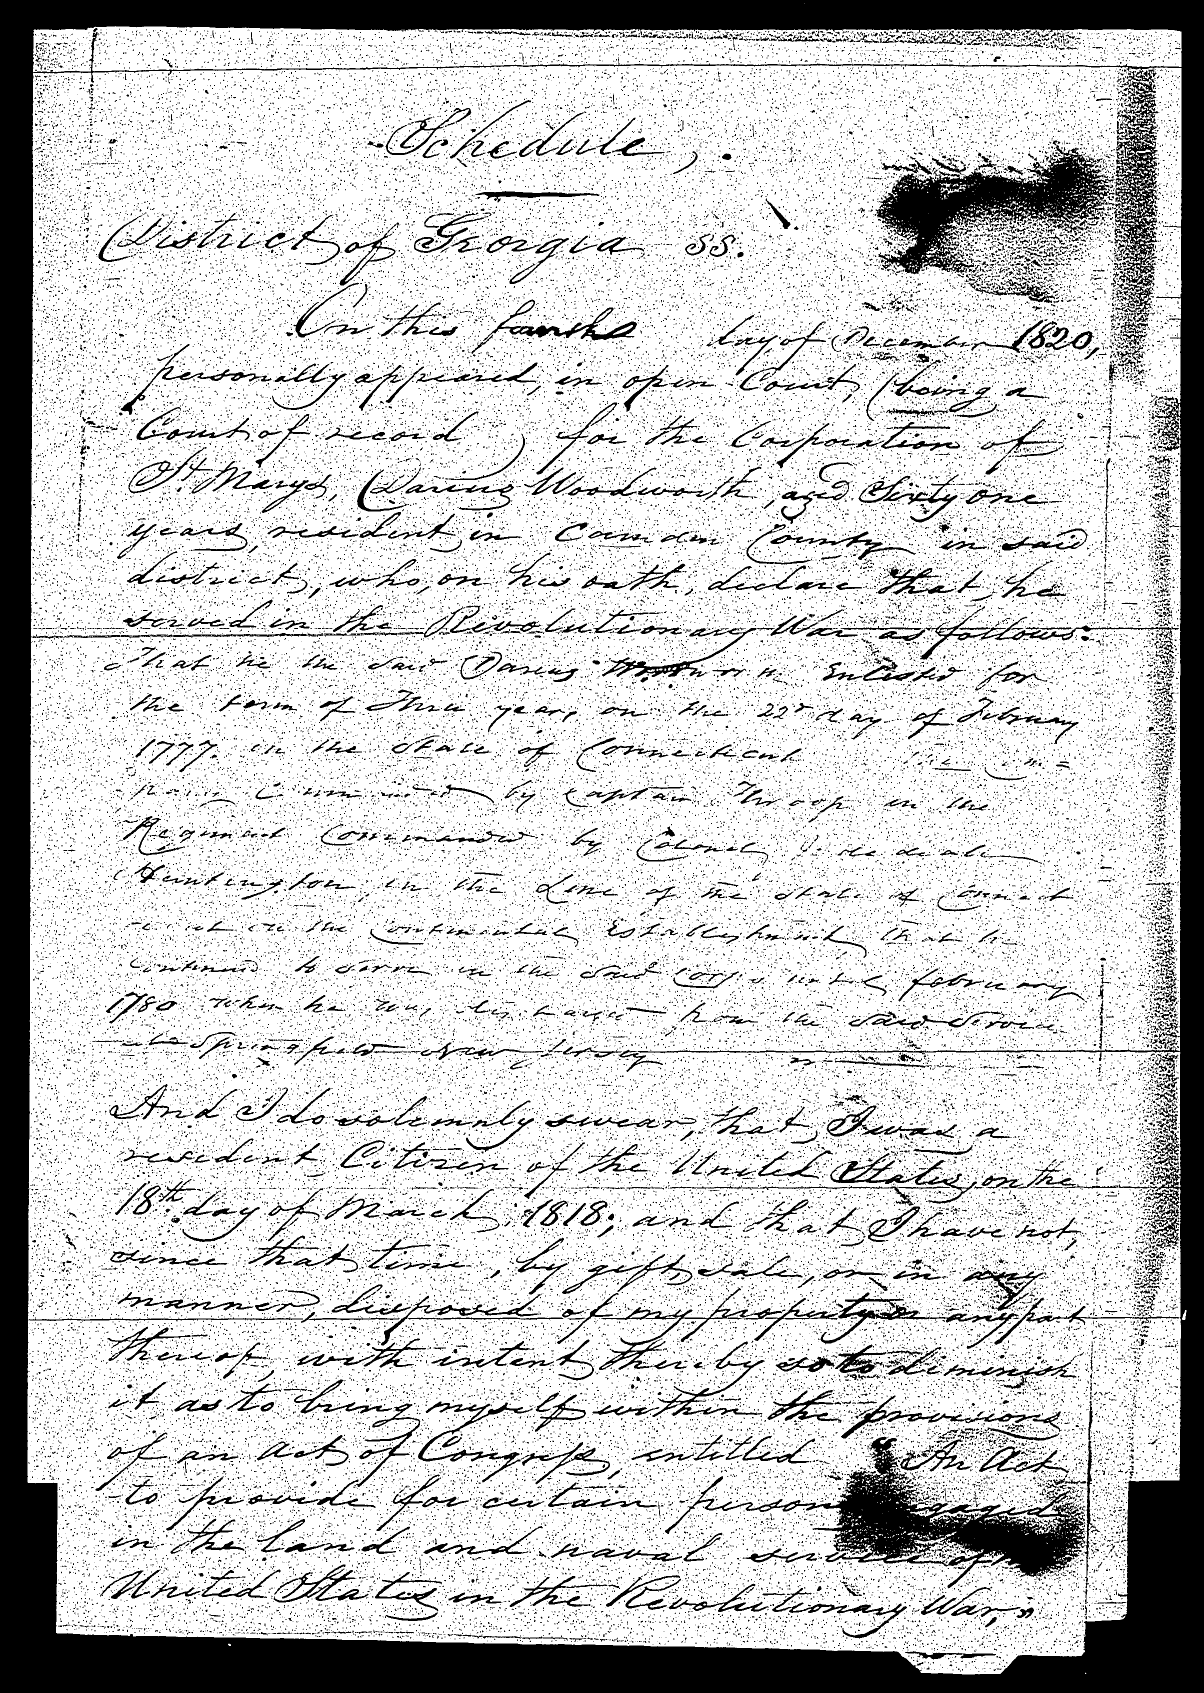 Schedule,
District of Georgia ss.
On this fourth day of December 1820,
personally appeared, in open Court, (being a
Court of record) for the Corporation of
St. Marys, Darius Woodworth, aged Sixty one
years, resident in Camden County in said
district, who, on his oath, declare that he
served in the Revolutionary War as follows:
That he the said Darius Woodworth Enlisted for
the term of Three years, on the 22d day of February
1777. in the State of Connecticut the Com=
pany Commanded by Captain Throop in the
Regiment Commanded by Colonel Jedediah
Huntington, in the Line of the State of Connect
icut on the Continental Establishment, that he
continued to serve in the said Corps until February
1780 when he was discharged from the said Service
at Springfield New Jersey
And I do solemnly swear, that, I was a
resident Citizen of the United States, on the
18th day of March, 1818; and that I have not,
since that time, by gift, sale, or in any
manner, disposed of my property or any part
thereof, with intent thereby so to diminish
it as to bring myself within the provisions
of an Act of Congress, entitled "An Act
to provide for certain persons engaged
in the land and naval service of the
United States in the Revolutionary War,"